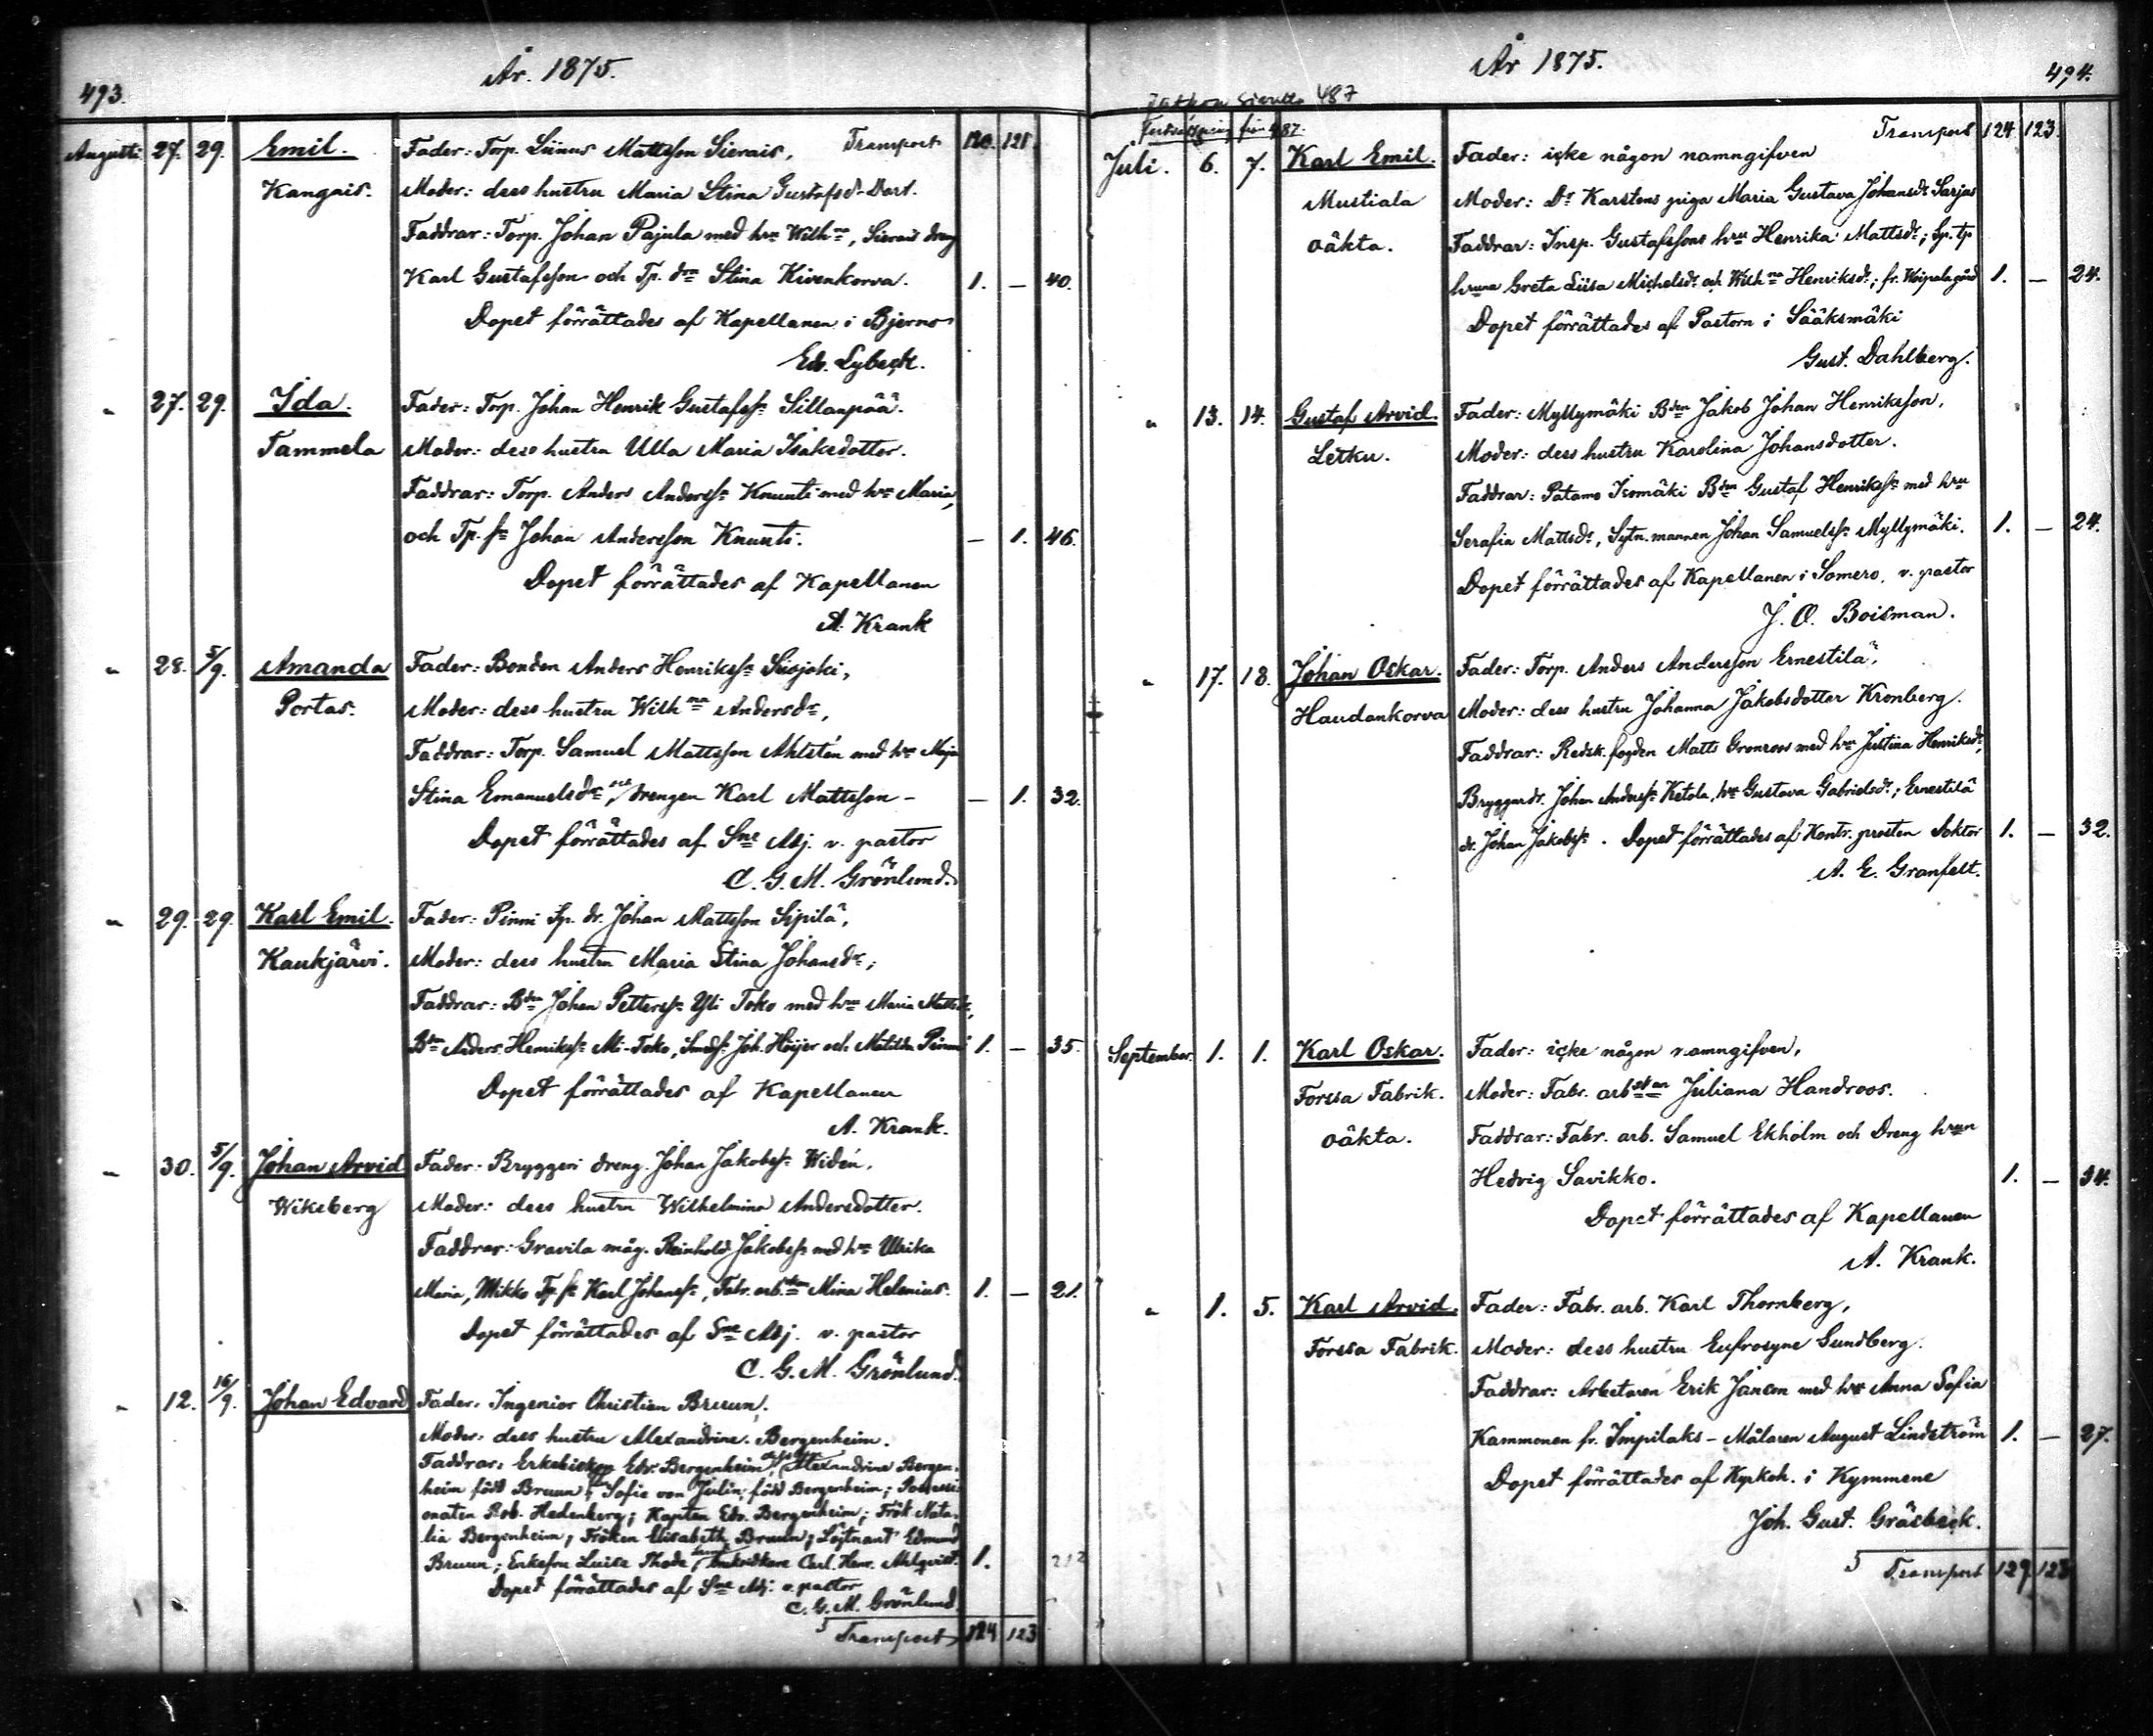 493.
År. 1875.
Transport 120. 121.
Augusti 27. 29. Emil. Fader: Torp. Liinus Mattsson Sierais,
Kangais. Moder: dess hustru Maria Stina Gustafsdr Dart.
Faddrar: Torp. Johan Pajula med hru Wilhna, Sierais dreng
Karl Gustafsson och Tp. dra Stina Kivenkorva. 1. — 40.
Dopet förrättades af Kapellanen i Bjerno
Edv. Lybeck.
" 27. 29. Ida. Fader: Torp. Johan Henrik Gustafss: Sillanpää.
Tammela Moder: dess hustru Ulla Maria Isaksdotter.
Faddrar: Torp. Anders Anderss: Knuuti med hru Maria,
och Tp. sn Johan Andersson Knuuti. — 1. 46.
Dopet förrättades af Kapellanen
A. Krank
" 28. 5/9. Amanda Fader: Bonden Anders Henrikss: Suojoki,
Portas. Moder: dess hustru Wilhna Andersdr,
Faddrar: Torp. Samuel Mattsson Ahlstén med hru Maja
Stina Emanuelsdr och drengen Karl Mattsson — — 1. 32.
Dopet förrättades af Sne Adj. v. pastor
C. G. M. Grönlund.
" 29. 29. Karl Emil. Fader: Pinni Sp. dr. Johan Mattsson Sipilä,
Kaukjärvi. Moder: dess hustru Maria Stina Johansdr;
Faddrar: Bdn Johan Petterss: Yli Toko med hru Maria Mattsdr,
Bdn Anders Henrikss: Ali-Toko, Joh. Höijer och Matilda Pinni 1. — 35.
Dopet förrättades af Kapellanen
A. Krank.
" 30. 5/9. Johan Arvid Fader: Bryggeri dreng. Johan Jakobss: Widén,
Wiksberg Moder: dess hustru Wilhelmina Andersdotter.
Faddrar: Gravila måg. Reinhold Jakobss: med hru Ulrika
Maria, Mikko Tp. sn Karl Johanss:, Fabr. arb.skan Mina Helenius. 1. — 21.
Dopet förrättades af Sne Adj. v. pastor
C. G. M. Grönlund.
" 12. 16/9. Johan Edvard Fader: Ingeniör Christian Bruun,
Moder: dess hustru Alexandrine Bergenheim.
Faddrar: Erkebiskop Edv. Bergenheim, Alexandrine Bergen-
heim född Bruun; Sofie von Julin, född Bergenheim; Possessi-
onaten Rob. Hedenberg; Kapten Edv. Bergenheim; Frök Nata-
lia Bergenheim, Fröken Elisabeth Bruun; Löjtnant Edmund
Bruun; Enkefru Luise Thodé, Carl. Henr. Ahlqvist. 1. 212
Dopet förrättades af Sne Adj. v. pastor
C. G. M. Grönlund.
5 Transport 124 123
År 1875.
494.
Jatkoa sivulta 487
Fortsättning från 487.
Transport 124 123.
Juli. 6. 7. Karl Emil. Fader: icke någon namngifven
Mustiala Moder: Dr Karstens piga Maria Gustava Johansdr Sarjas
oäkta. Faddrar: Insp. Gustafssons hru Henrika Mattsdr; Sp. tp.
hruna Greta Liisa Michelsdr och Wilhna Henriksdr; fr. Woipala gård 1. — 24.
Dopet förrättades af Pastorn i Sääksmäki
Gust. Dahlberg.
" 13. 14. Gustaf Arvid. Fader: Myllymäki Bden Jakob Johan Henriksson,
Letku. Moder: dess hustru Karolina Johansdotter.
Faddrar: Patamo Isomäki Bden Gustaf Henrikss: med hru
Serafia Mattsdr, Sytn. mannen Johan Samuelss: Myllymäki. 1. — 24.
Dopet förrättades af Kapellanen i Somero, v. pastor
J. O. Boisman.
" 17. 18. Johan Oskar. Fader: Torp. Anders Andersson Ernestilä,
Haudankorva Moder: dess hustru Johanna Jakobsdotter Kronberg.
Faddrar: Redsk. fogden Matts Gronroos med hru Justina Henriksdr,
Bryggardr. Johan Anderss: Ketola, hru Gustava Gabrielsdr; Ernestilä
dr. Johan Jakobss: . Dopet förrättades af Kontr. prosten doktor 1. — 32.
A. E. Granfelt.
September. 1. 1. Karl Oskar. Fader: icke någon namngifven,
Forssa Fabrik. Moder: Fabr. arbskan Juliana Handroos.
oäkta. Faddrar: Fabr. arb. Samuel Ekholm och Dreng hrun
Hedvig Savikko. 1. — 34.
Dopet förrättades af Kapellanen
A. Krank.
" 1. 5. Karl Arvid. Fader: Fabr. arb. Karl Thornberg,
Forssa Fabrik. Moder: dess hustru Eufrosyne Sundberg.
Faddrar: Arbetaren Erik Janson med hru Anna Sofia
Kammonen fr. Impilaks — Målaren August Lindström 1. — 27.
Dopet förrättades af Kyrkoh. i Kymmene
Joh. Gust. Gräsbeck.
5 Transport 129 123